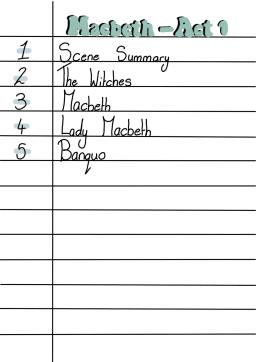 Macbeth - Act 1
1 Scene Summary
2 The Witches
3 Macbeth
4 Lady Macbeth
5 Banquo